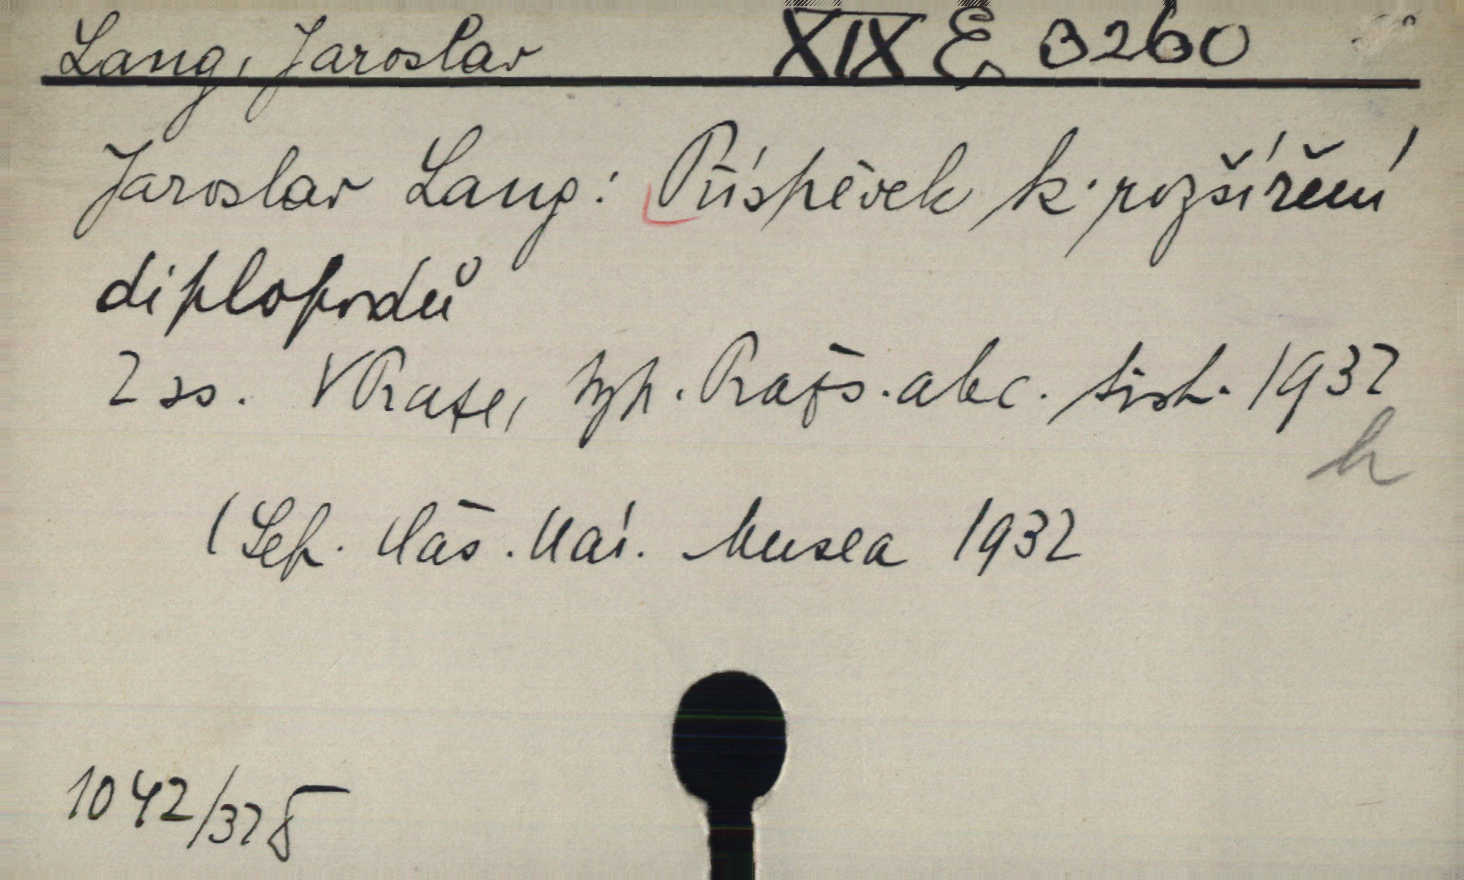 Lang, Jaroslav XIX E 3260
Jaroslav Lang: Příspěvek k rozšíření
diplopodů
2 ss. V Praze, typ. Pražs. akc. tisk. 1932
h
(Sep. Čas. Nár. Musea 1932
1042/325